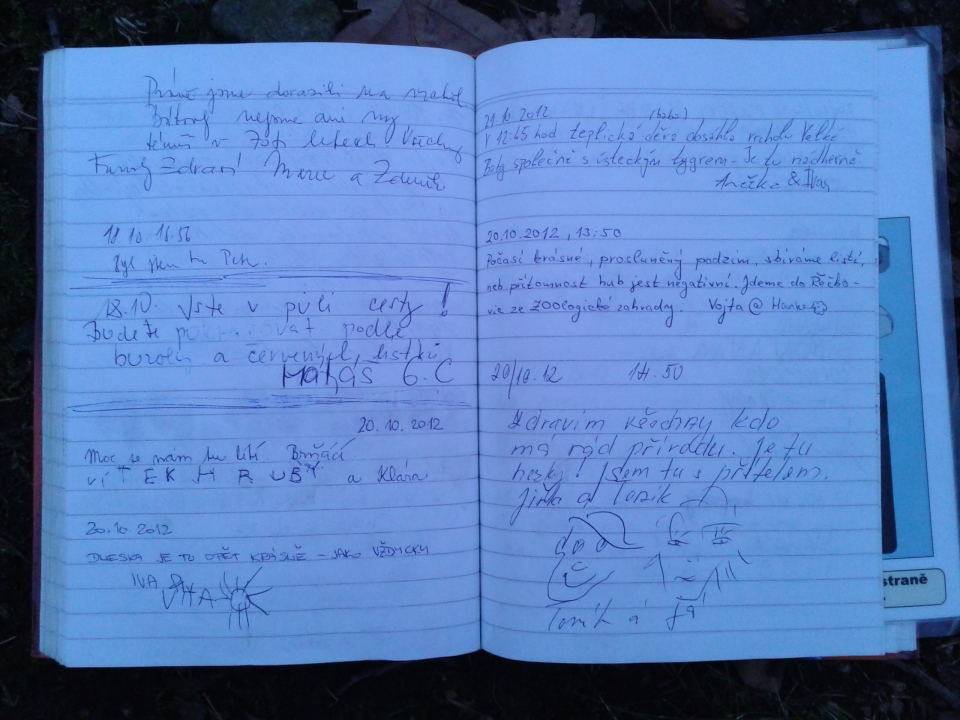 Právě jsme dorazili na vrchol
nejsme ani my,
téměř v 70ti letech Všechny
Zdraví Marie a Zdeněk
18.10. 16.56
Byl jsem tu Petr.
18.10. Jste v půli cesty!
Budete pokračovat podle
a červených lístků
Matyáš 6.C
20.10.2012
Moc se nám tu líbí. Brňáci
víTEK HRUBÝ a Klára
20.10.2012
DNESKA JE TU OPĚT KRÁSNĚ - JAKO VŽDYCKY
IVA
VÍŤA
10.2012 (hobo)
V 12:45 hod teplická děva dosáhla vrcholu Velké
Boty společně s ústeckým tygrem - Je tu nádherně
Anežka & Ivan
20.10.2012, 13:50
Počasí krásné, prosluněný podzim, sbíráme listí,
neb přítomnost hub jest negativní. Jdeme do
ze ZOOlogické zahrady. Vojta @ Hanka
20/10.12 14.50
Zdravím všechny kdo
má rád přírodu. Je tu
hezky! Jsem tu s přítelem.
Jirka a Toník
Toník a já
straně